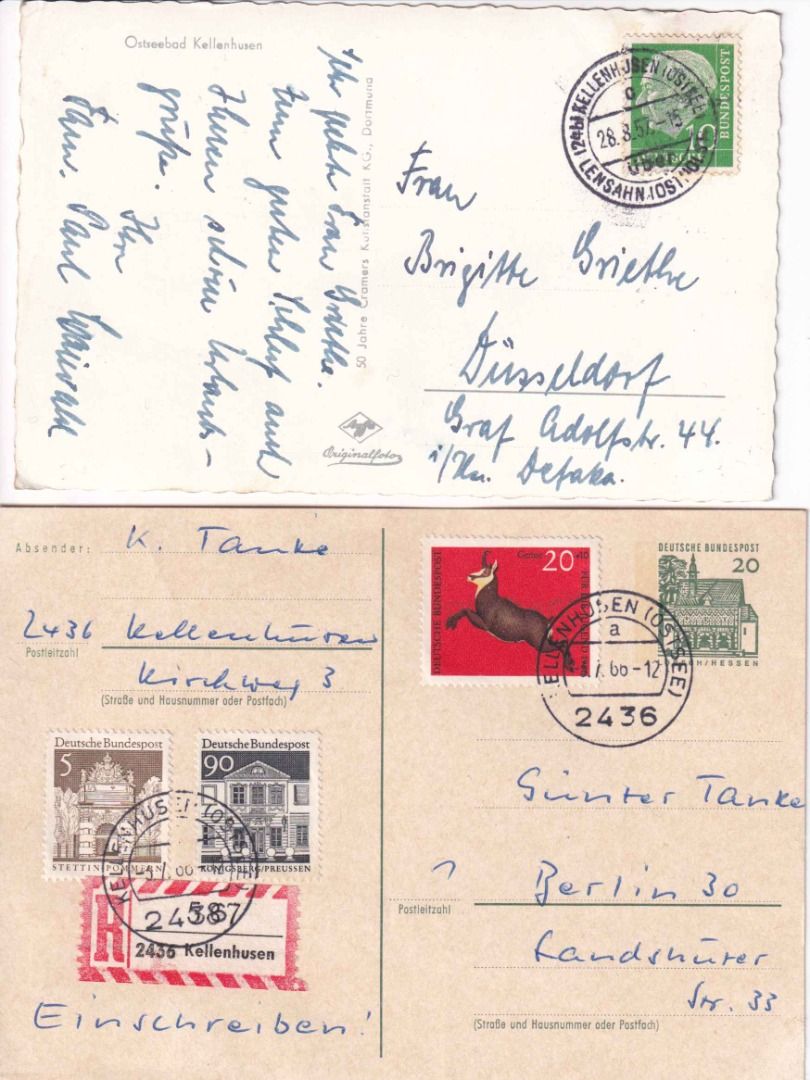 Ostseebad Kellenhusen
Ihr liebe Frau Griethe.
Zum guten Schluß auch
Ihnen schöne Urlaubs-
grüße. Ihr
Fam. Paul
50 Jahre Cramers Kunstanstalt KG., Dortmund
Originalfoto
10
DEUTSCHE BUNDESPOST
(24b) KELLENHUSEN (OSTSEE)
a
28.8.57.-18
über
LENSAHN (OSTHOLST)
Frau
Brigitte Griethe
Düsseldorf
Graf Adolfstr. 44.
i/Hs. Defaka.
Absender: K. Tanke
2436 Kellenhusen
Postleitzahl
Kirchweg 3
(Straße und Hausnummer oder Postfach)
DEUTSCHE BUNDESPOST
Gemse 20 +10
FÜR DIE JUGEND 1966
DEUTSCHE BUNDESPOST
20
LORSCH/HESSEN
KELLENHUSEN (OSTSEE)
a
7.66-12
2436
Deutsche Bundespost
5
STETTIN-POMMERN
Deutsche Bundespost
90
KÖNIGSBERG/PREUSSEN
KELLENHUSEN (OSTSEE)
2436
R
587
2436 Kellenhusen
Einschreiben!
Günter Tanke
1 Berlin 30
Postleitzahl
Landshuter
Str. 33
(Straße und Hausnummer oder Postfach)